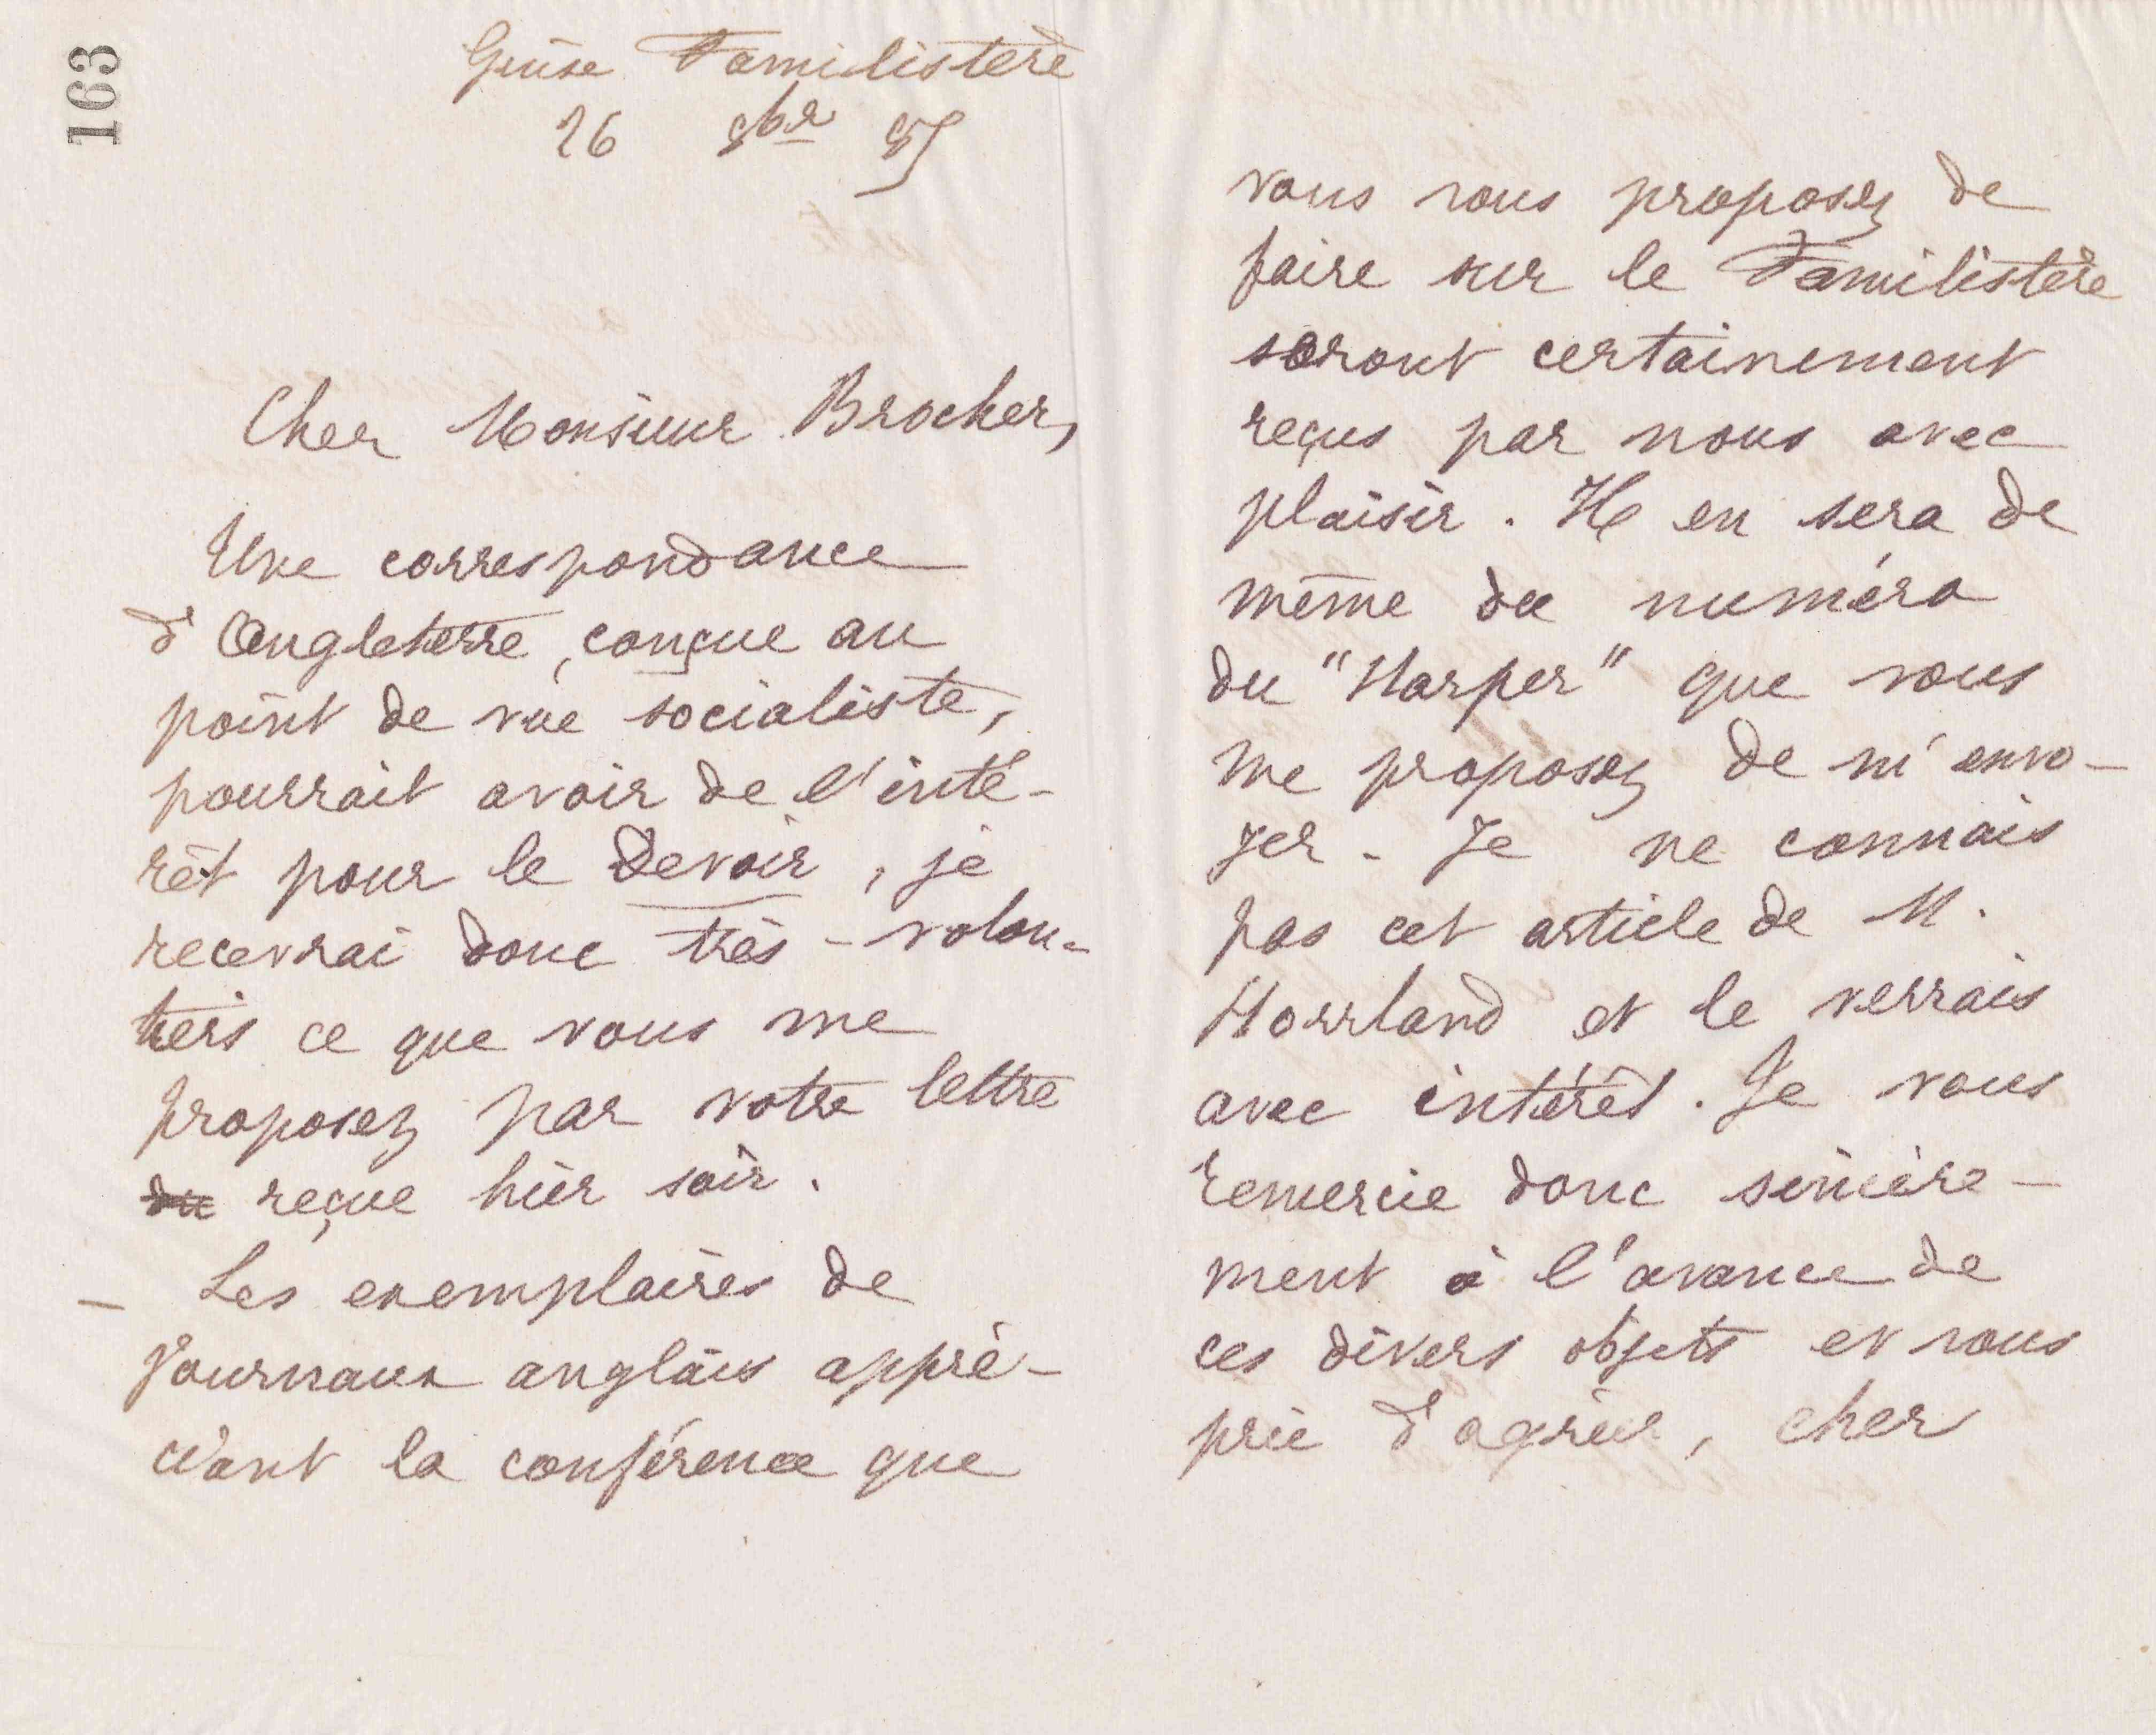 163
Guise Familistère
26 8bre 87
Cher Monsieur Brocher,
Une correspondance
d'Angleterre, conçue au
point de vue socialiste,
pourrait avoir de l'inté-
rêt pour le Devoir, je
recevrai donc très-volon-
tiers ce que vous me
proposez par votre lettre
du reçue hier soir.
- Les exemplaires de
journaux anglais appré-
ciant la conférence que
vous vous proposez de
faire sur le Familistère
seront certainement
reçus par nous avec
plaisir. Il en sera de
même du numéro
du "Harper" que vous
me proposez de m'envo-
yer. Je ne connais
pas cet article de M.
Horrland et le verrais
avec intérêt. Je vous
remercie donc sincère-
ment à l'avance de
ces divers objets et vous
prie d'agréer, cher